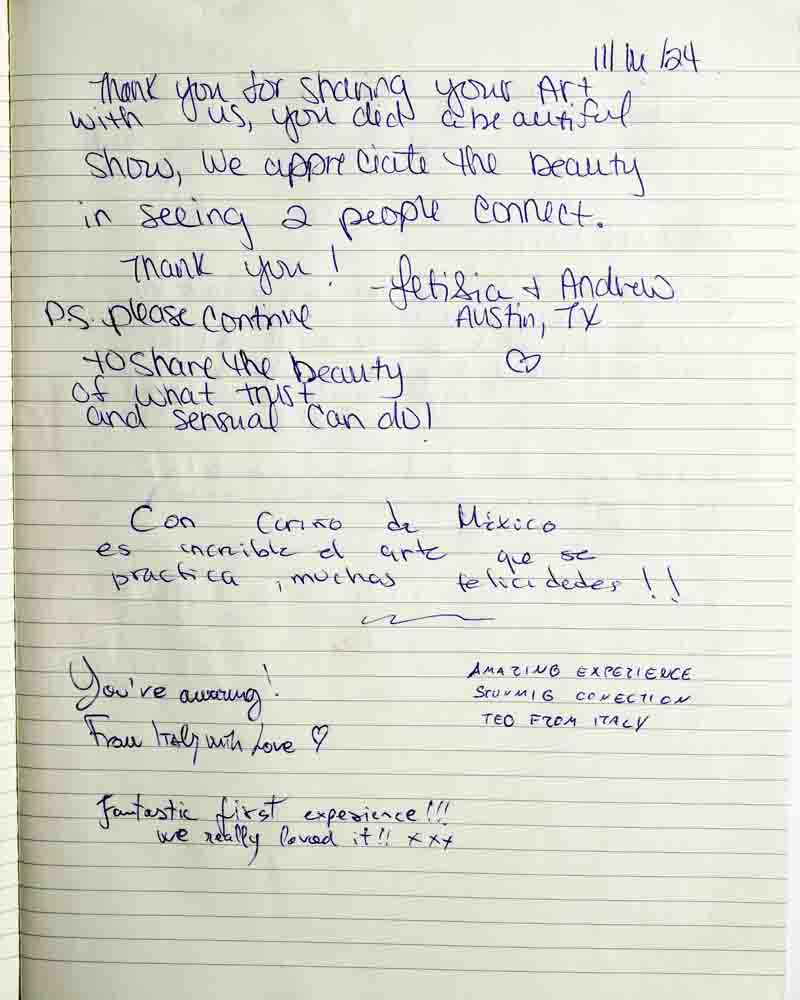 /24
Thank you for sharing your Art
with us, you did a beautiful
show, we appreciate the beauty
in seeing 2 people connect.
Thank you!
-Letisia + Andrew
Austin, TX
P.S. please continue
to share the beauty
of what trust
and sensual can do!
Con Cariño de México
es increible el arte que se
practica, muchas felicidedes!!
You're amazing!
From Italy with love ♡
AMAZING EXPERIENCE
STUNNIG CONECTION
TEO FROM ITALY
Fantastic first experience!!!
we really loved it!! xxx